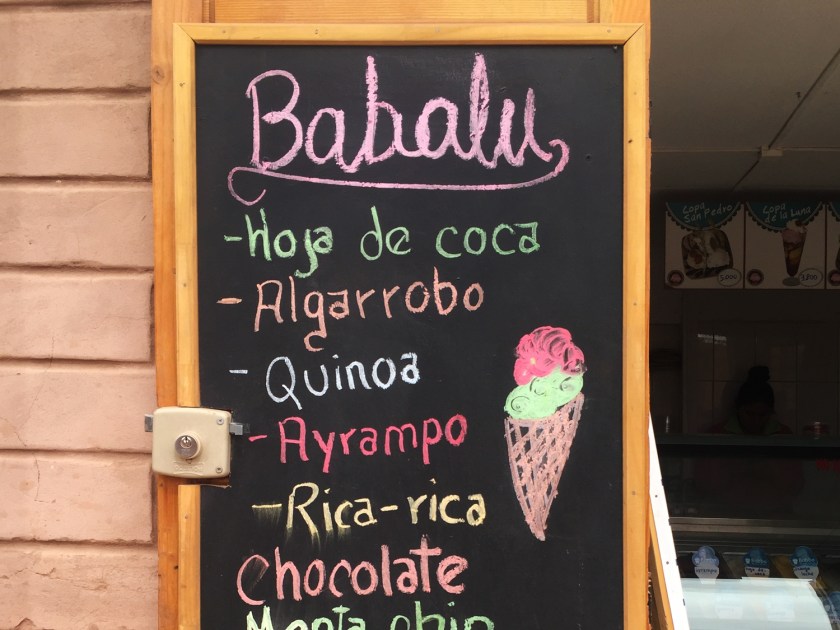 Babalu
-Hoja de coca
-Algarrobo
-Quinoa
-Ayrampo
-Rica-rica
Chocolate
Menta chip
Copa
San Pedro
5.000
Copa
de la Luna
3.800